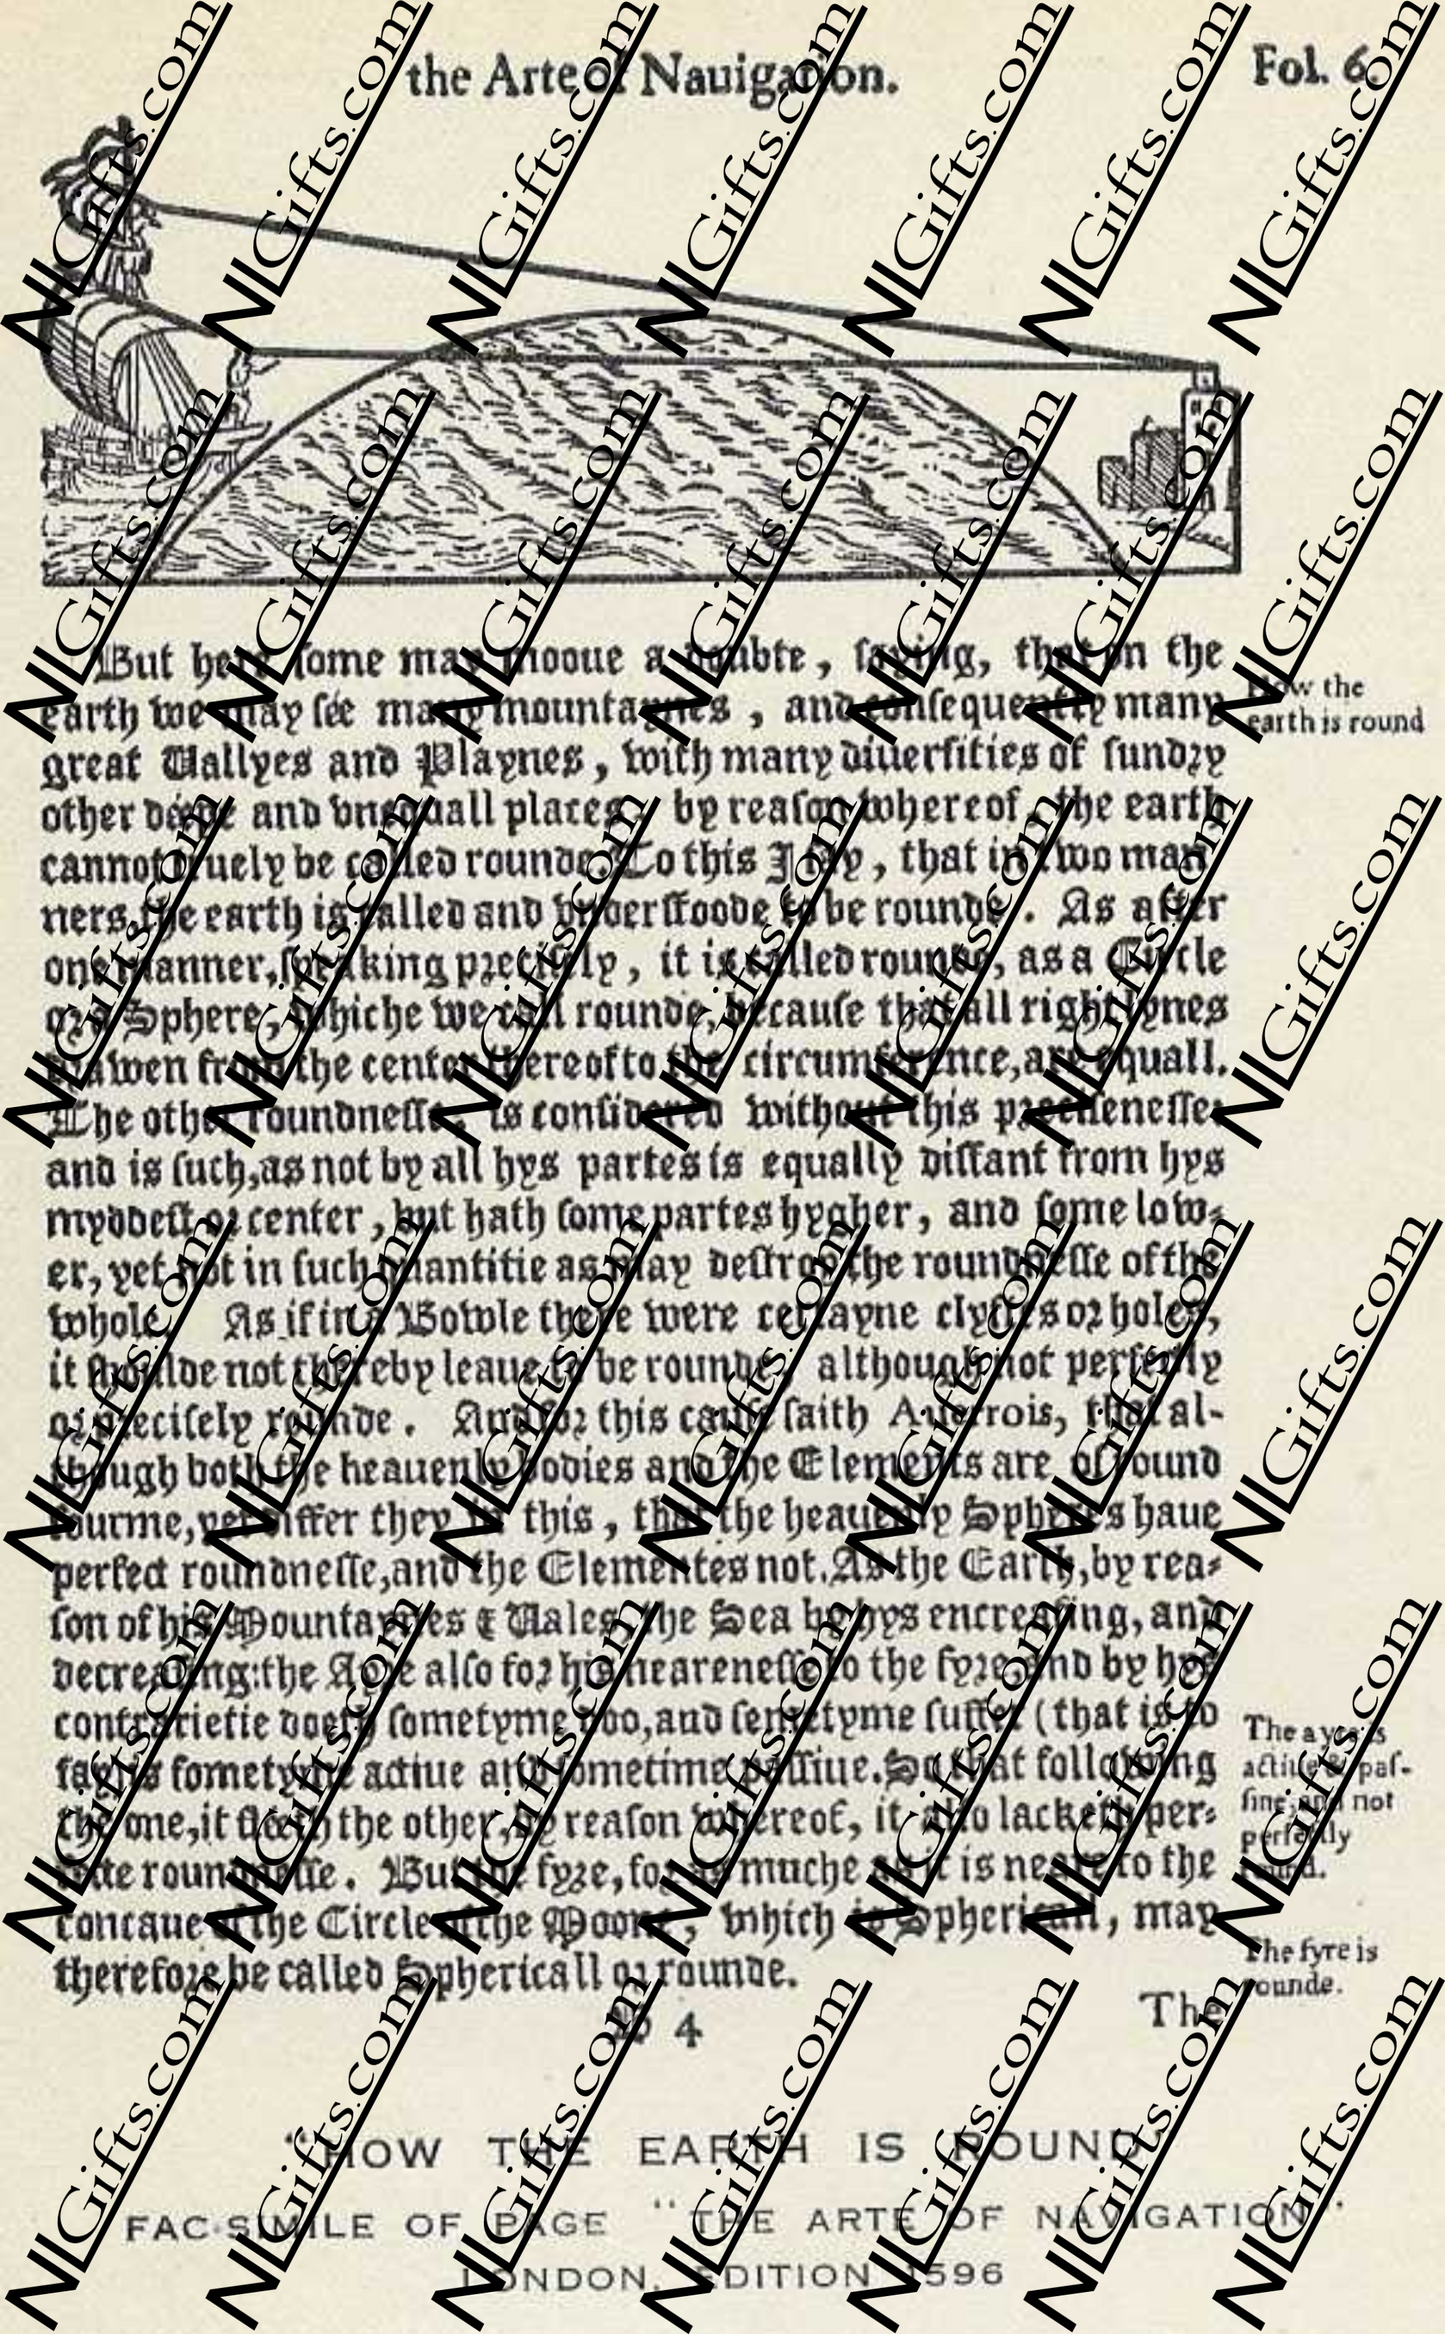 the Arte of Nauigation.
Fol. 6.
But here some may mooue a doubte, saying, that on the
earth we may sée many mountaynes, and consequently many
great Uallyes and Playnes, with many diuersities of sundry
other deepe and vnequall places, by reason whereof, the earth
cannot truely be called rounde. To this I say, that in two man-
ners the earth is called and vnderstoode to be rounde. As after
one manner, speaking precisely, it is called rounde, as a Circle
or a Sphere, whiche we call rounde, because that all right lynes
drawen from the center thereof to the circumference, are equall.
The other roundnesse, is considered without this precisenesse:
and is such, as not by all hys partes is equally distant from hys
myddest or center, but hath some partes hygher, and some low-
er, yet not in such quantitie as may destroy the roundnesse of the
whole. As if in a Bowle there were certayne clyftes or holes,
it shoulde not thereby leaue to be rounde, although not perfectly
or precisely rounde. And for this cause saith Auerrois, that al-
though both the heauenly bodies and the Elements are of round
fourme, yet differ they in this, that the heauenly Spheres haue
perfect roundnesse, and the Elementes not. As the Earth, by rea-
son of his Mountaynes & Uales, the Sea by hys encreasing, and
decreasing: the Ayre also for his nearenesse to the fyre and by hys
contrarietie doeth sometyme doo, and sometyme suffer (that is to
say) is sometyme actiue and sometime passiue. So that following
the one, it fleeth the other, by reason whereof, it also lacketh per-
fecte roundnesse. But the fyre, for as muche as it is neare to the
concaue of the Circle of the Moone, which is Sphericall, may
therefore be called Sphericall or rounde.
4
The
How the
earth is round
The ayre is
actiue & pas-
siue, and not
perfectly
round.
The fyre is
rounde.
"HOW THE EARTH IS ROUND
FAC-SIMILE OF PAGE "THE ARTE OF NAVIGATION"
LONDON, EDITION 1596
NIGifts.com